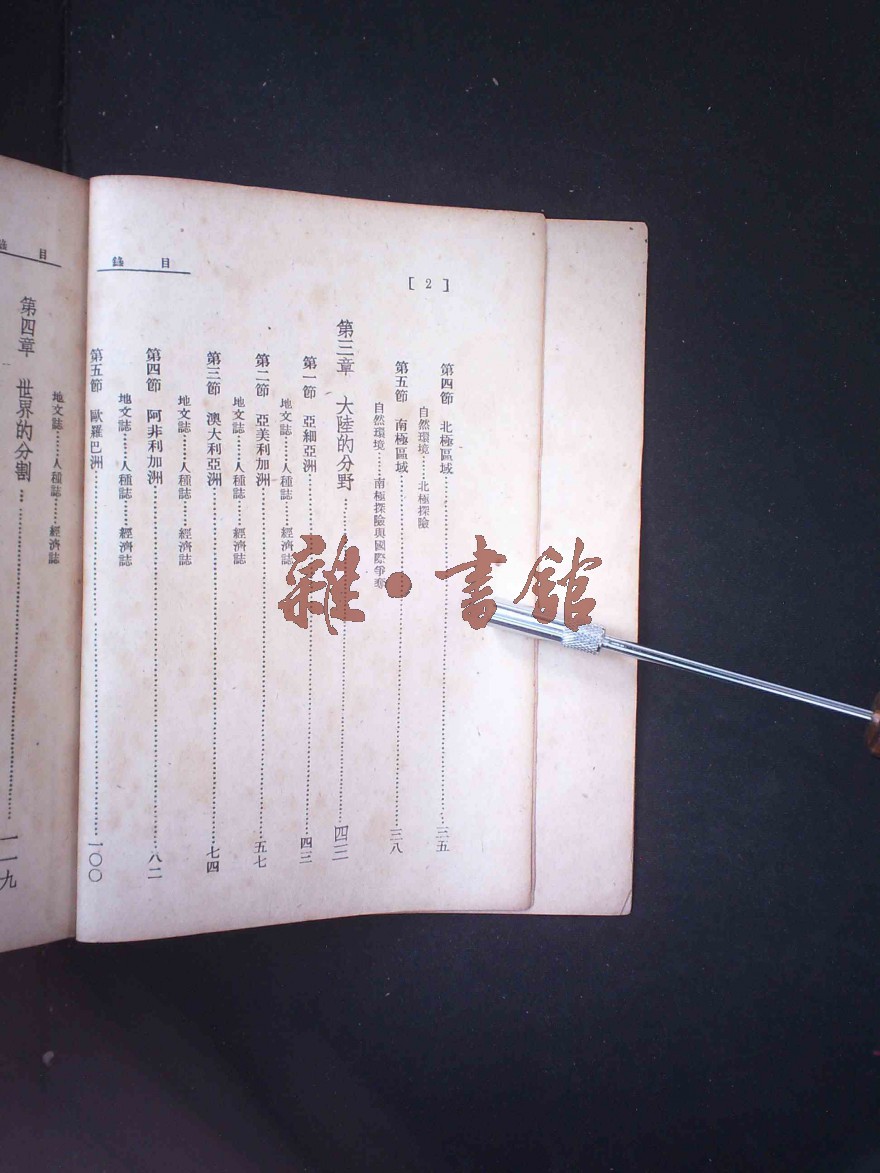 目錄
[ 2 ]
第四節 北極區域……三五
自然環境……北極探險
第五節 南極區域……三八
自然環境……南極探險與國際爭奪
第三章 大陸的分野……四三
第一節 亞細亞洲……四三
地文誌……人種誌……經濟誌
第二節 亞美利加洲……五七
地文誌……人種誌……經濟誌
第三節 澳大利亞洲……七四
地文誌……人種誌……經濟誌
第四節 阿非利加洲……八二
地文誌……人種誌……經濟誌
第五節 歐羅巴洲……一〇〇
目錄
地文誌……人種誌……經濟誌
第四章 世界的分割……一一九
雜·書館